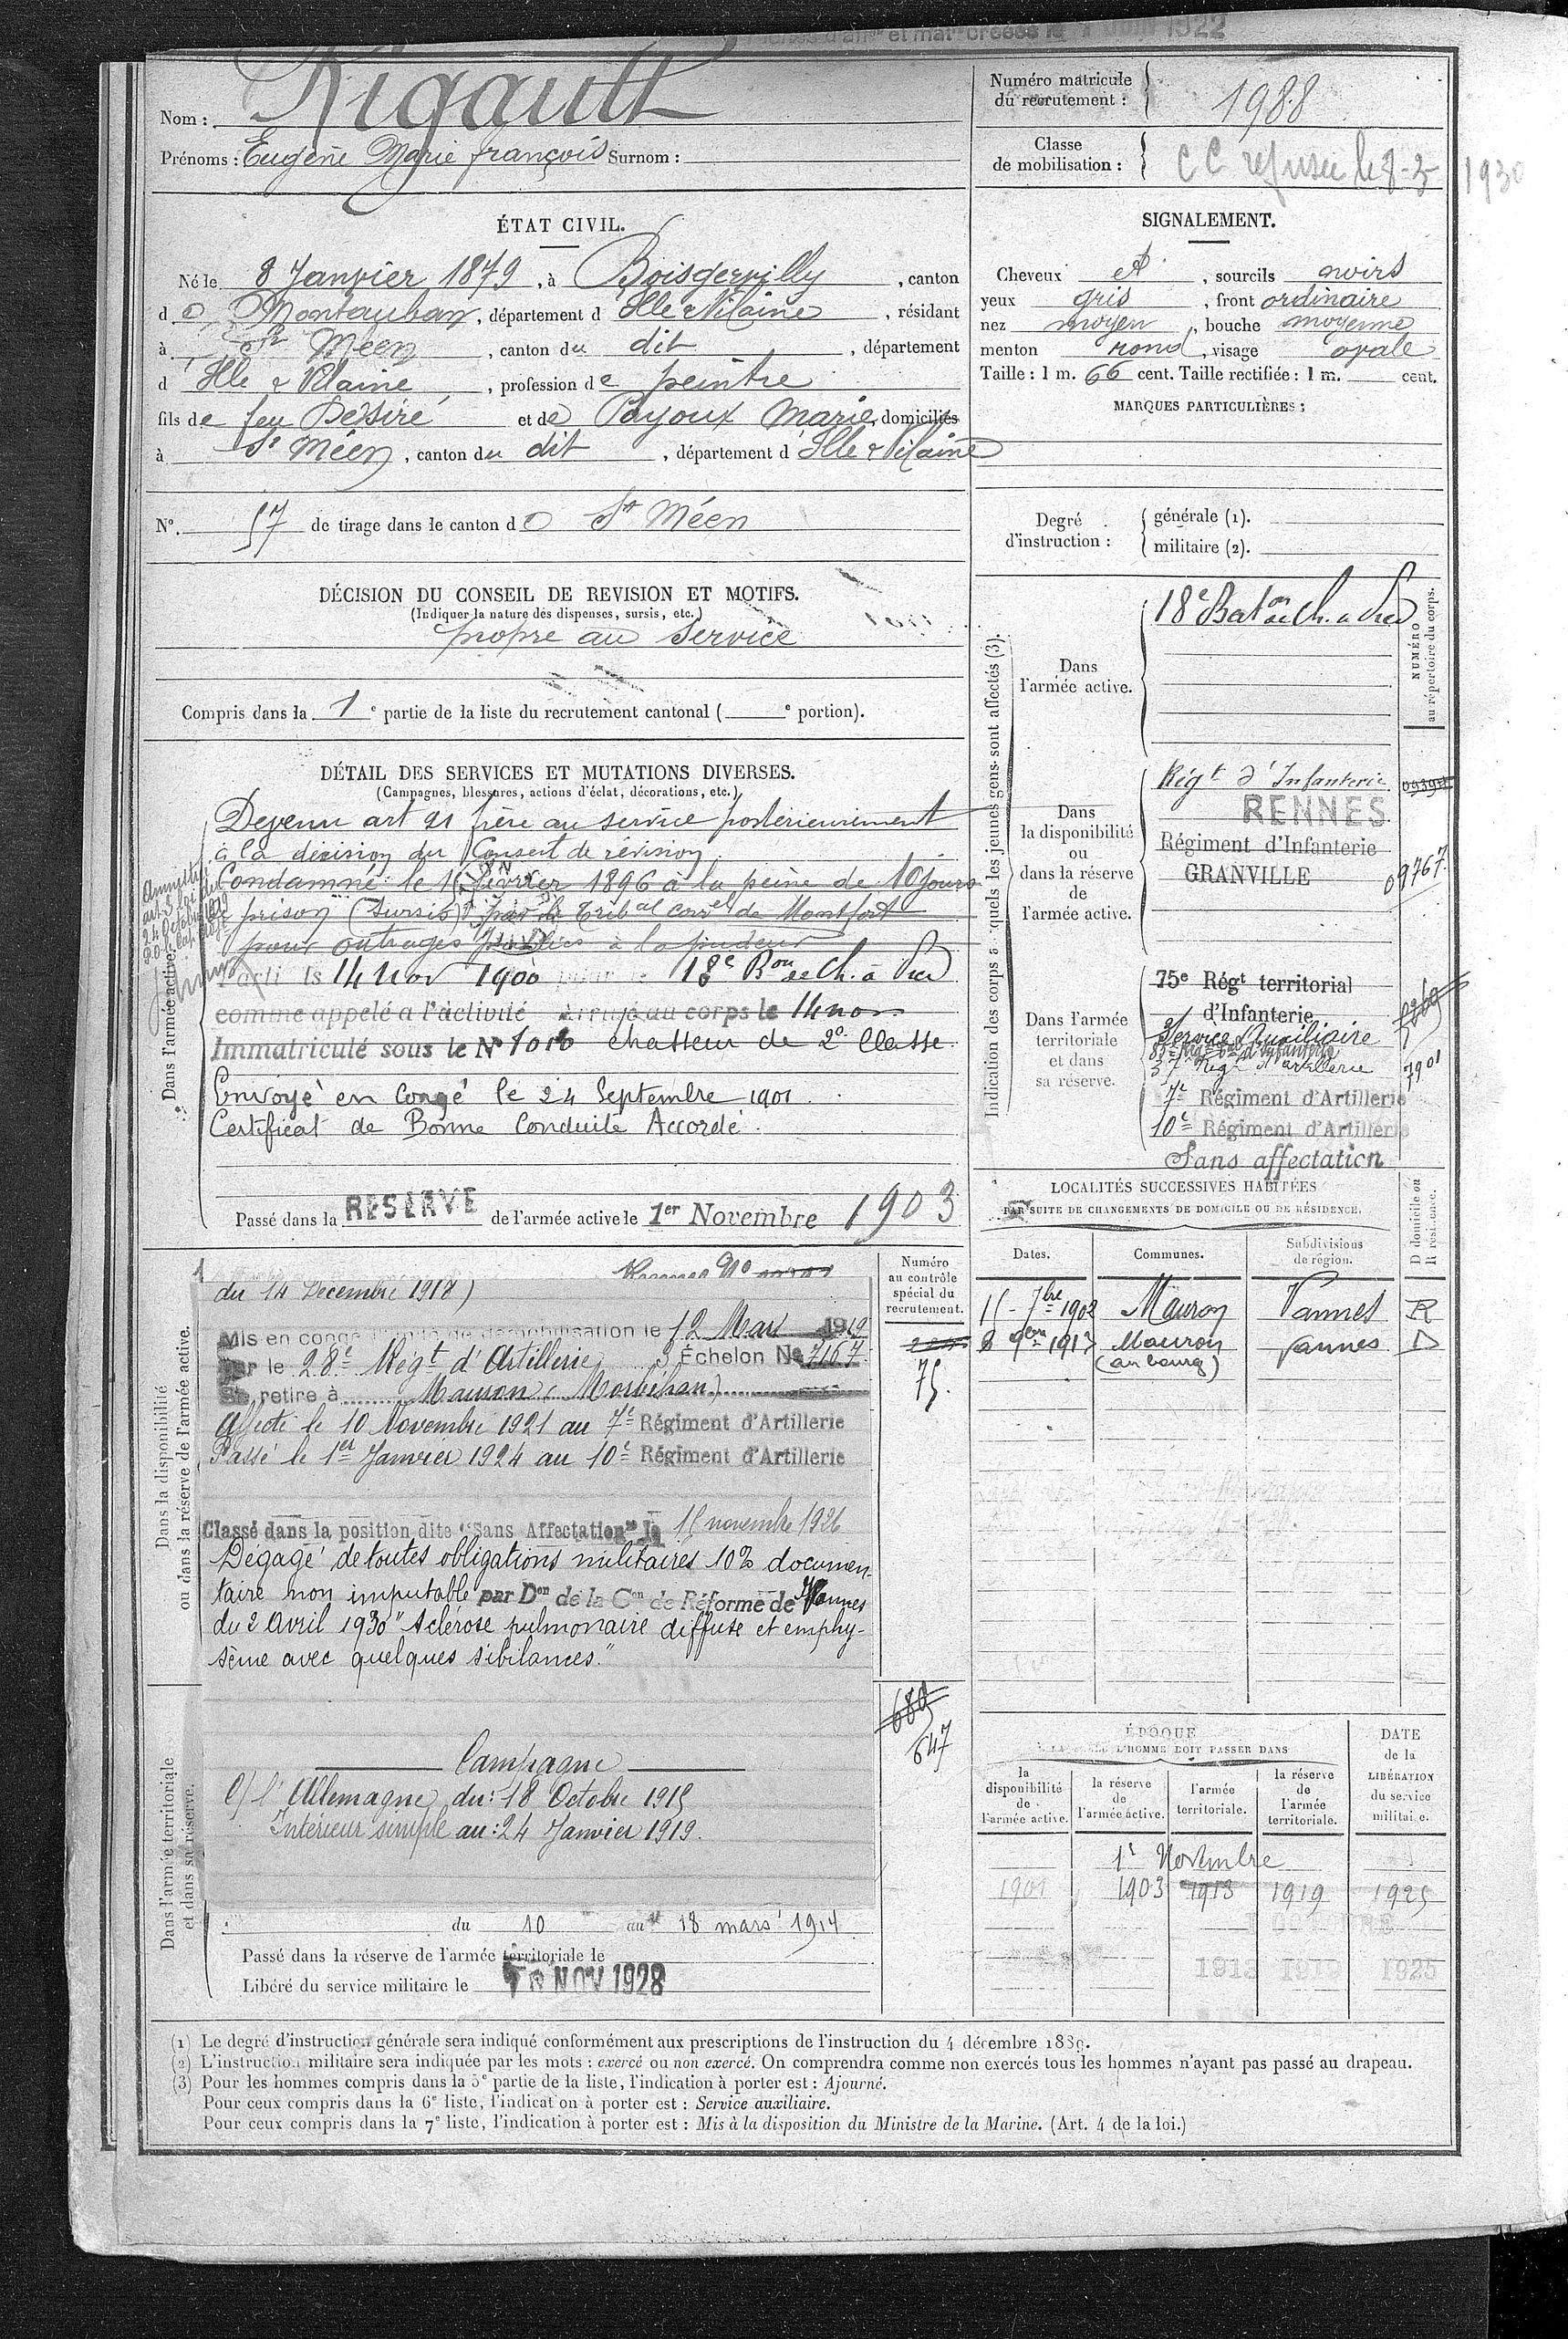 et mat
1922
Nom : Rigault
Prénoms : Eugène Marie françois Surnom :
Numéro matricule
du recrutement :
1988
Classe
de mobilisation :
CC refusée le 8-3 1930
ÉTAT CIVIL.
Né le 8 Janvier 1879, à Boisgervilly, canton
de Montauban, département d'Ille & Vilaine, résidant
à St Méen, canton du dit, département
d'Ille & Vilaine, profession de peintre
fils de feu Désiré et de Payoux Marie, domiciliés
à St Méen, canton du dit, département d'Ille & Vilaine
N°. 57 de tirage dans le canton de St Méen
SIGNALEMENT.
Cheveux et, sourcils noirs
yeux gris, front ordinaire
nez moyen, bouche moyenne
menton rond, visage ovale
Taille : 1 m. 66 cent. Taille rectifiée : 1 m. cent.
MARQUES PARTICULIÈRES :
Degré
d'instruction :
générale (1).
militaire (2).
DÉCISION DU CONSEIL DE REVISION ET MOTIFS.
(Indiquer la nature des dispenses, sursis, etc.)
propre au Service
Compris dans la 1e partie de la liste du recrutement cantonal ( e portion).
DÉTAIL DES SERVICES ET MUTATIONS DIVERSES.
(Campagnes, blessures, actions d'éclat, décorations, etc.)
Dans l'armée active.
Devenu art 21 frère au service postérieurement
à la décision du Conseil de révision
Condamné le 1 février 1896 à la peine de 10 jours
prison (Sursis) par le Tribal correl de Montfort
pour outrages publics à la pudeur
Parti le 14 Nov 1900 18e Bon de Ch. à Pied
comme appelé à l'activité Arrivé au corps le 14 nov
Immatriculé sous le N° chasseur de 2e Classe
Envoyé en Congé le 24 Septembre 1901.
Certificat de Bonne Conduite Accordé.
Passé dans la RESERVE de l'armée active le 1er Novembre 1903
Indication des corps auxquels les jeunes gens sont affectés (3).
Dans
l'armée active.
18e Baton de Ch. à Pied
NUMÉRO
au répertoire du corps.
Dans
la disponibilité
ou
dans la réserve
de
l'armée active.
Régt d'Infanterie
RENNES
Régiment d'Infanterie
GRANVILLE
09767
Dans l'armée
territoriale
et dans
sa réserve.
75e Régt territorial
d'Infanterie
Service Auxiliaire
37e Régt d'artillerie
7901
7e Régiment d'Artillerie
10e Régiment d'Artillerie
Sans affectation
LOCALITÉS SUCCESSIVES HABITÉES
PAR SUITE DE CHANGEMENTS DE DOMICILE OU DE RÉSIDENCE.
Dates.
Communes.
Subdivisions
de région.
D domicile ou
R résidence.
15 - 7bre 1902 Mauron Vannes R
8 9bre 1913 Mauron Vannes D
(au bourg)
Numéro
au contrôle
spécial du
recrutement.
75.
Dans la disponibilité
ou dans la réserve de l'armée active.
du 14 Décembre 1918)
Mis en congé illimité de démobilisation le 12 Mars 1919
Par le 28e Régt d'Artillerie 3 Échelon No 7167
Se retire à Mauron (Morbihan)
Affecté le 10 Novembre 1921 au 7e Régiment d'Artillerie
Passé le 1er Janvier 1924 au 10e Régiment d'Artillerie
Classé dans la position dite "Sans Affectation" le 15 novembre 1926
Dégagé de toutes obligations militaires 10% documen-
taire non imputable par Don de la Con de Réforme de Vannes
du 2 Avril 1930 "Sclérose pulmonaire diffuse et emphy-
sème avec quelques sibilances."
Dans l'armée territoriale
et dans sa réserve.
647
Campagne
C/ l'Allemagne du : 18 Octobre 1915
Intérieur simple au : 24 Janvier 1919.
du 10 au 18 mars 1914
Passé dans la réserve de l'armée territoriale le
Libéré du service militaire le NOV 1928
ÉPOQUE
À LAQUELLE L'HOMME DOIT PASSER DANS
la
disponibilité
de
l'armée active.
la réserve
de
l'armée active.
l'armée
territoriale.
la réserve
de
l'armée
territoriale.
DATE
de la
LIBÉRATION
du service
militaire.
1r Novembre
1901 1903 1913 1919 1925
1913 1919 1925
(1) Le degré d'instruction générale sera indiqué conformément aux prescriptions de l'instruction du 4 décembre 1889.
(2) L'instruction militaire sera indiquée par les mots : exercé ou non exercé. On comprendra comme non exercés tous les hommes n'ayant pas passé au drapeau.
(3) Pour les hommes compris dans la 5e partie de la liste, l'indication à porter est : Ajourné.
Pour ceux compris dans la 6e liste, l'indication à porter est : Service auxiliaire.
Pour ceux compris dans la 7e liste, l'indication à porter est : Mis à la disposition du Ministre de la Marine. (Art. 4 de la loi.)